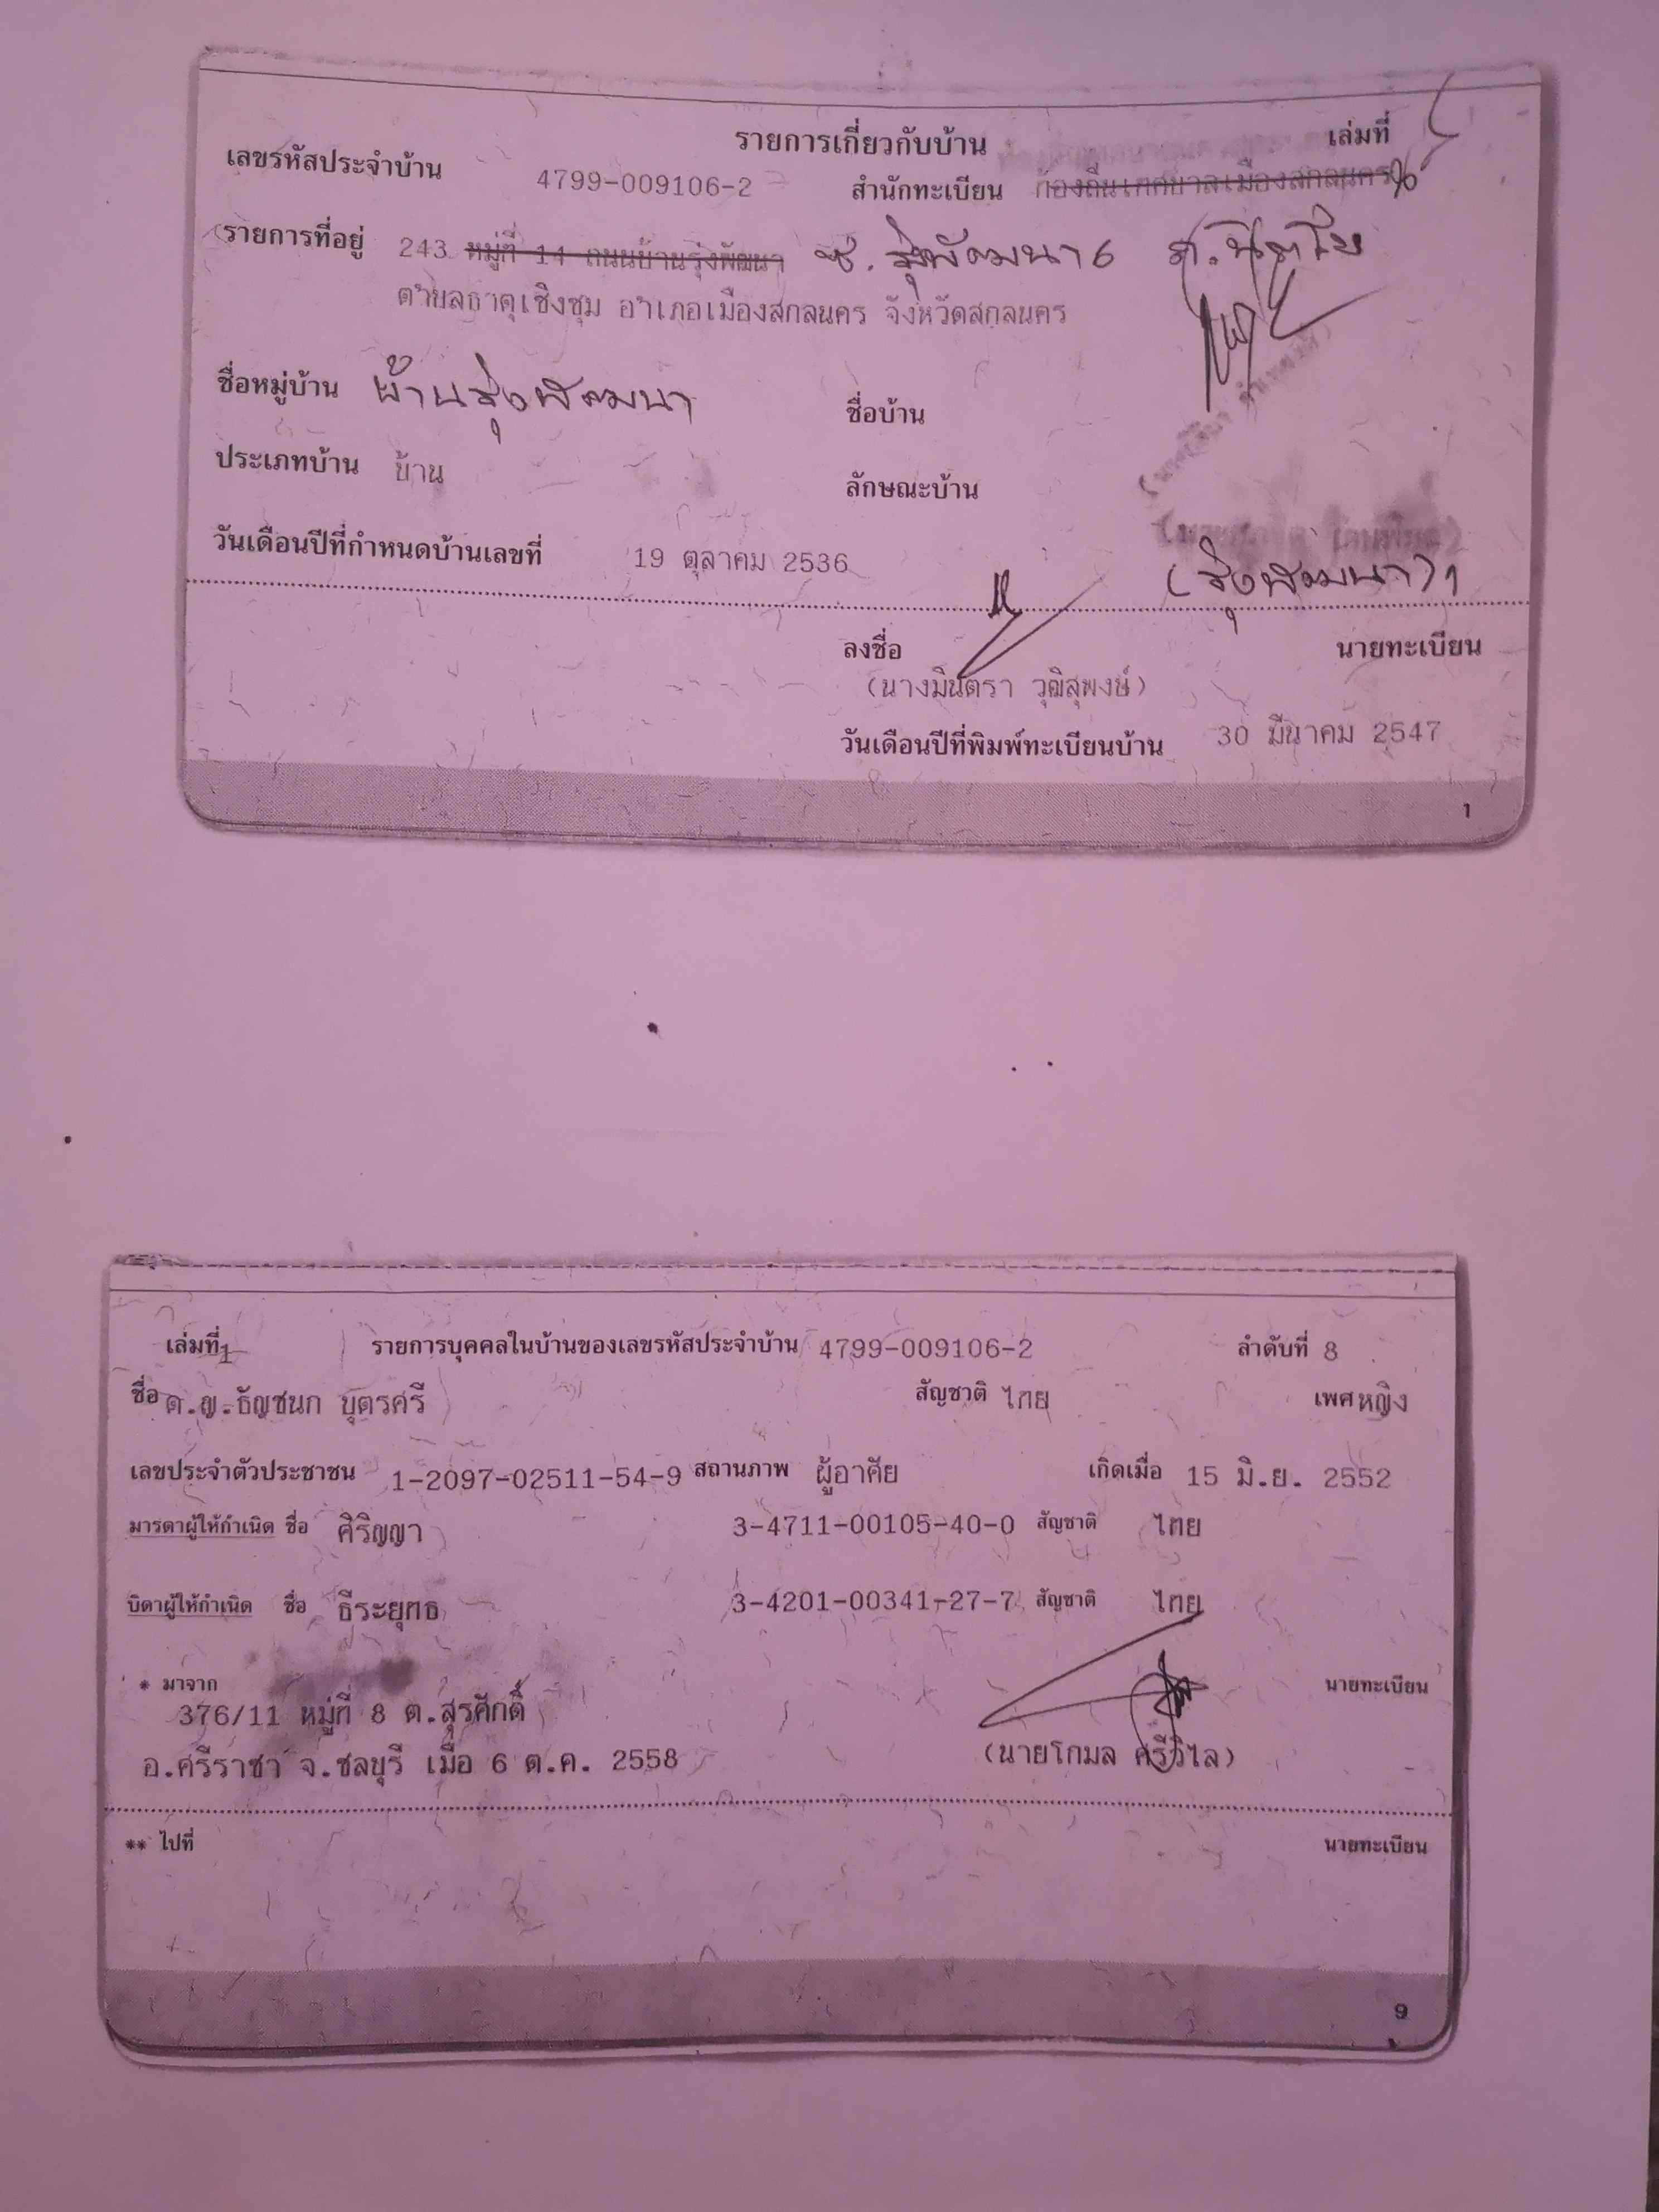 รายการเกี่ยวกับบ้าน เล่มที่
เลขรหัสประจำบ้าน 4799-009106-2 สำนักทะเบียน ท้องถิ่นเทศบาลเมืองสกลนคร
รายการที่อยู่ 243 หมู่ที่ 14 ถนนบ้านรุ่งพัฒนา ซ.รุ่งพัฒนา 6 ถ.นิตโย
ตำบลธาตุเชิงชุม อำเภอเมืองสกลนคร จังหวัดสกลนคร
ชื่อหมู่บ้าน บ้านรุ่งพัฒนา ชื่อบ้าน
ประเภทบ้าน บ้าน ลักษณะบ้าน
วันเดือนปีที่กำหนดบ้านเลขที่ 19 ตุลาคม 2536
(รุ่งพัฒนา)
ลงชื่อ นายทะเบียน
(นางมินตรา วุฒิสุพงษ์)
วันเดือนปีที่พิมพ์ทะเบียนบ้าน 30 มีนาคม 2547
1
เล่มที่ 1 รายการบุคคลในบ้านของเลขรหัสประจำบ้าน 4799-009106-2 ลำดับที่ 8
ชื่อ ด.ญ.ธัญชนก บุตรศรี สัญชาติ ไทย เพศ หญิง
เลขประจำตัวประชาชน 1-2097-02511-54-9 สถานภาพ ผู้อาศัย เกิดเมื่อ 15 มิ.ย. 2552
มารดาผู้ให้กำเนิด ชื่อ ศิริญญา 3-4711-00105-40-0 สัญชาติ ไทย
บิดาผู้ให้กำเนิด ชื่อ ธีระยุทธ 3-4201-00341-27-7 สัญชาติ ไทย
* มาจาก นายทะเบียน
376/11 หมู่ที่ 8 ต.สุรศักดิ์
อ.ศรีราชา จ.ชลบุรี เมื่อ 6 ต.ค. 2558 (นายโกมล ศรีวิไล)
** ไปที่ นายทะเบียน
9